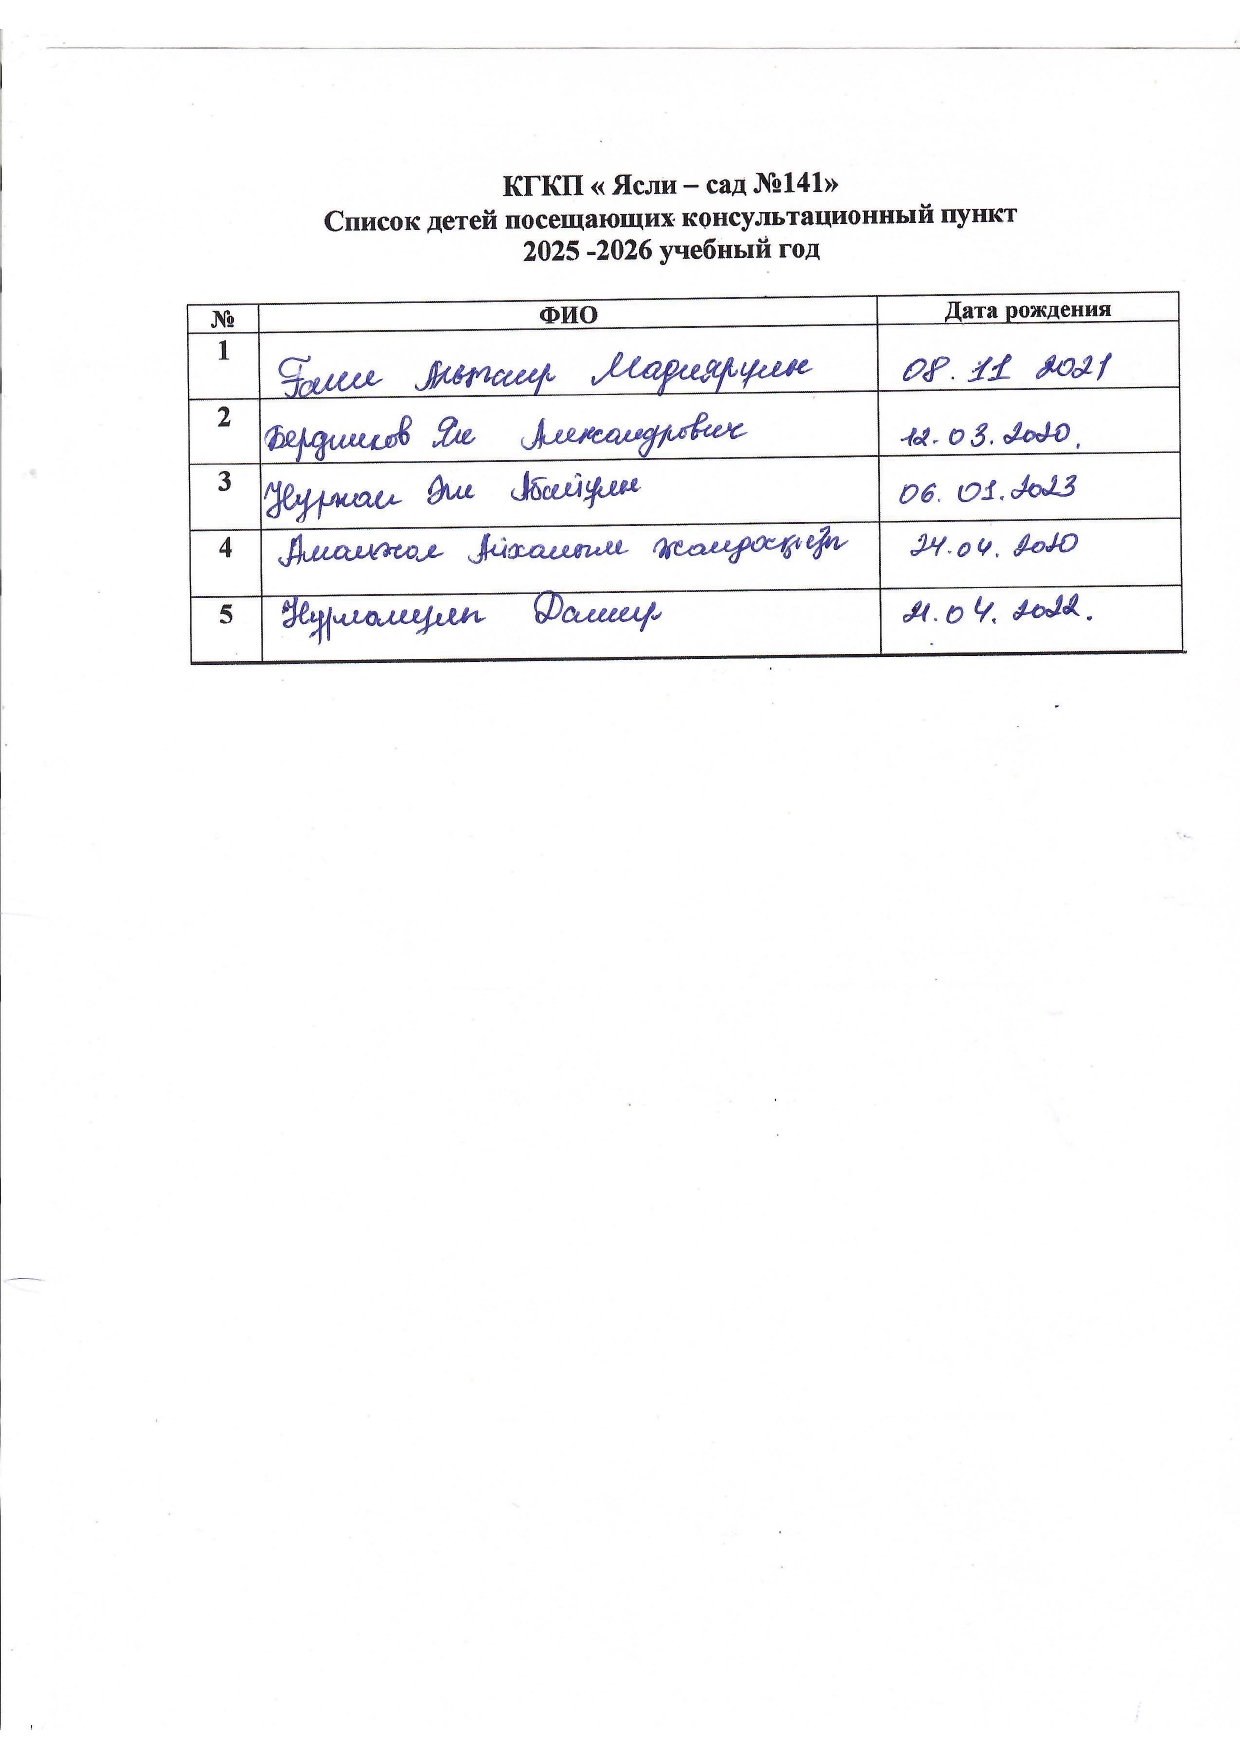 КГКП « Ясли – сад №141»
Список детей посещающих консультационный пункт
2025 -2026 учебный год
№ ФИО Дата рождения
1 Гани Альтаир Мадиярулы 08. 11 2021
2 Бердников Ян Александрович 12. 03. 2020.
3 Нуржан Али Абайулы 06. 01. 2023
4 Аманжол Айханым 24. 04. 2020
5 Дамир 21. 04. 2022.